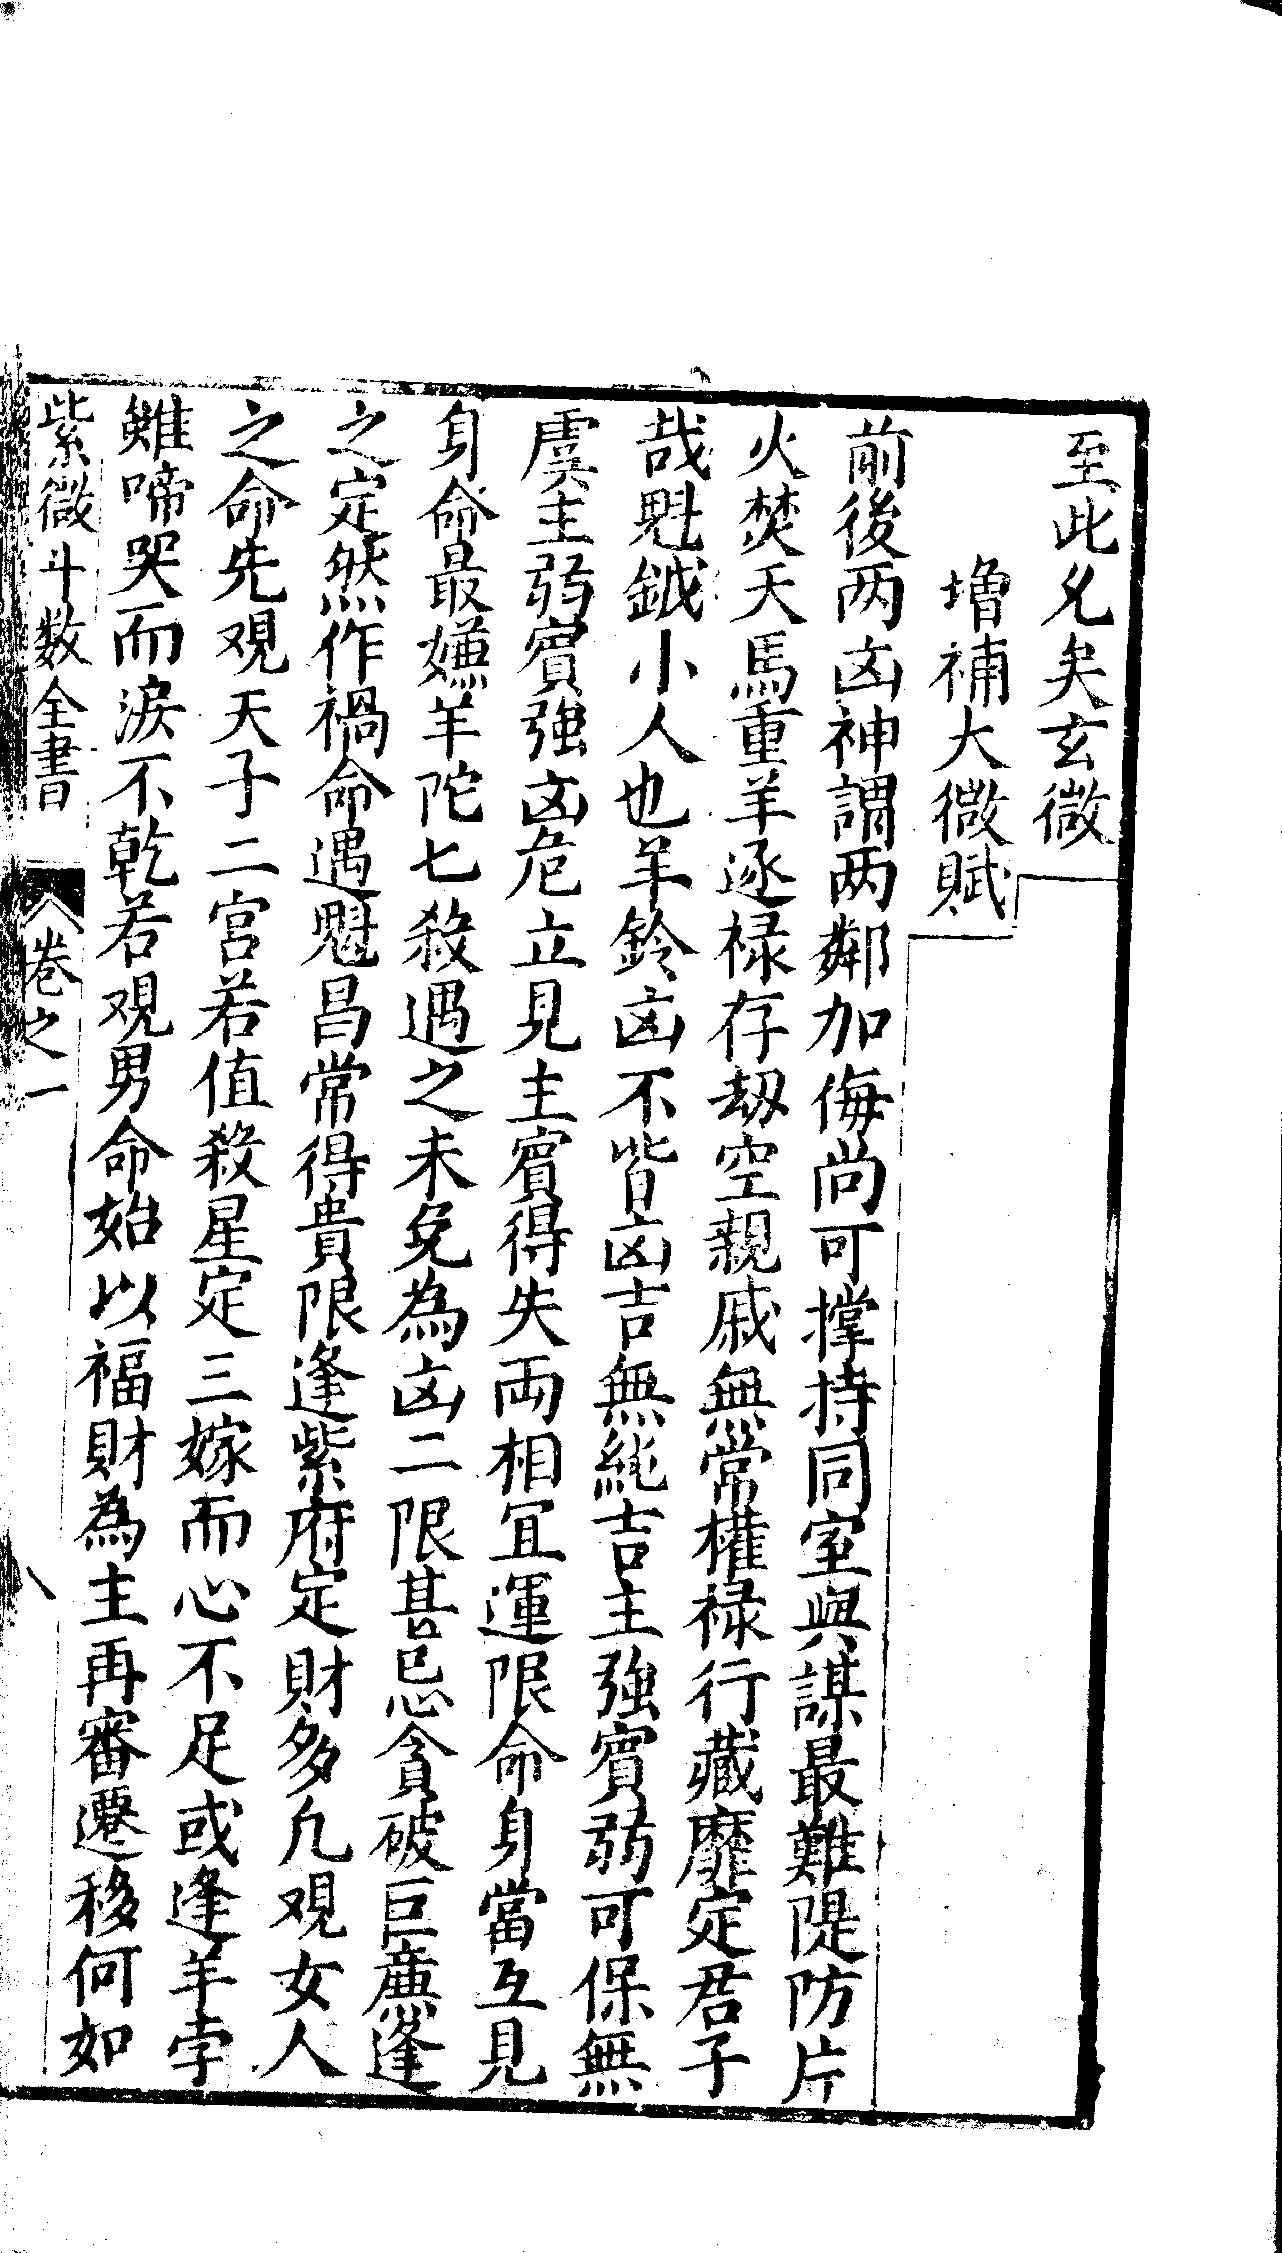 至此允矣玄微
增補太微賦
前後两凶神謂两鄰加侮尚可撑持同室與謀最難隄防片
火焚天馬重羊逐禄存刼空親戚無常權禄行藏靡定君子
哉魁鉞小人也羊鈴凶不皆凶吉無純吉主強賓弱可保無
虞主弱賓強凶危立見主賓得失両相冝運限命身當互見
身命最嫌羊陀七殺遇之未免為凶二限甚忌貪破巨廉逢
之定然作禍命遇魁昌常得貴限逢紫府定財多凢觀女人
之命先观天子二宮若值殺星定三嫁而心不足或逢羊孛
雖啼哭而淚不乾若观男命始以福財為主再審遷移何如
紫微斗数全書 卷之一